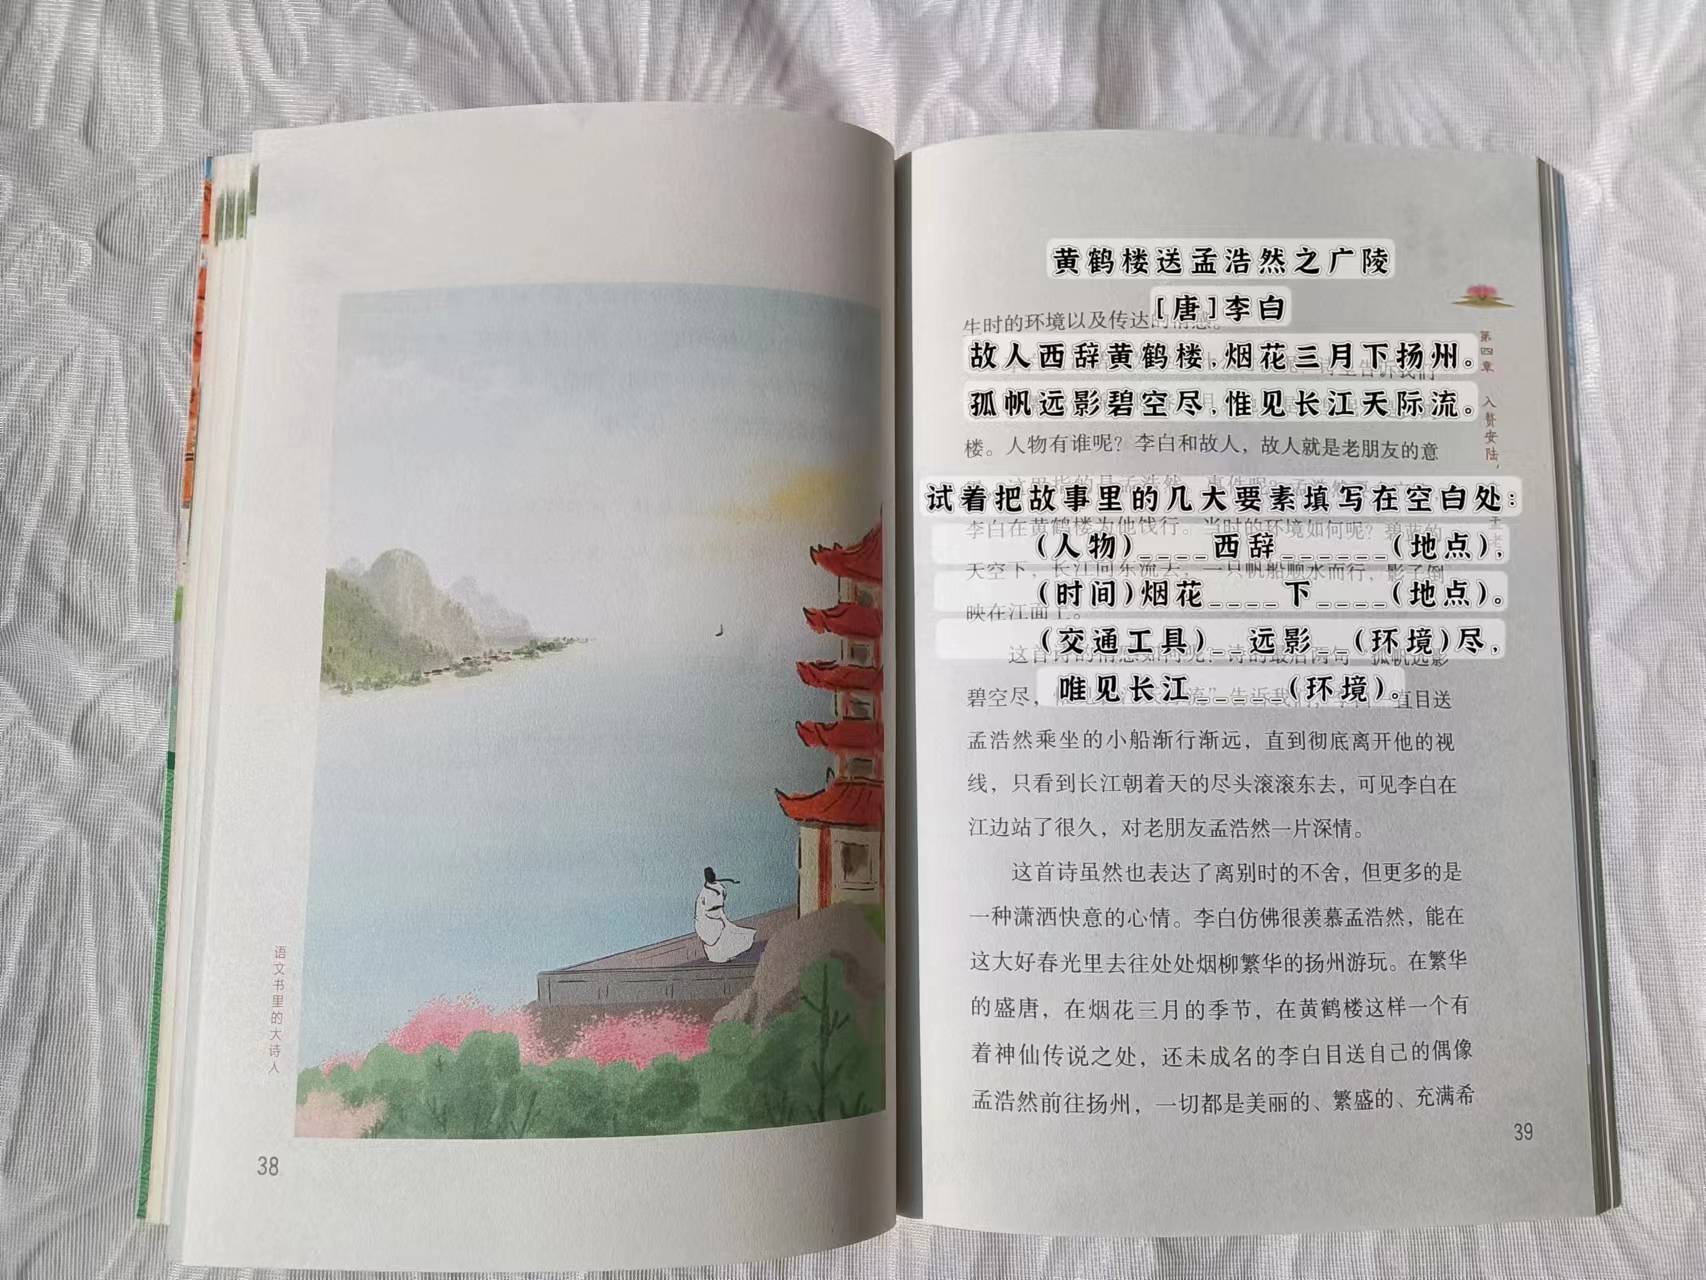 语文书里的大诗人
38
黄鹤楼送孟浩然之广陵
[唐]李白
生时的环境以及传达的情感。
故人西辞黄鹤楼,烟花三月下扬州。
孤帆远影碧空尽,惟见长江天际流。
楼。人物有谁呢?李白和故人,故人就是老朋友的意
试着把故事里的几大要素填写在空白处:
李白在黄鹤楼为他饯行。当时的环境如何呢?碧蓝的
(人物)____西辞______(地点),
天空下,长江向东流去,一只帆船顺水而行,影子倒
(时间)烟花____下____(地点)。
映在江面上。
(交通工具)__远影__(环境)尽,
唯见长江______(环境)。
碧空尽,
直目送
孟浩然乘坐的小船渐行渐远,直到彻底离开他的视
线,只看到长江朝着天的尽头滚滚东去,可见李白在
江边站了很久,对老朋友孟浩然一片深情。
这首诗虽然也表达了离别时的不舍,但更多的是
一种潇洒快意的心情。李白仿佛很羡慕孟浩然,能在
这大好春光里去往处处烟柳繁华的扬州游玩。在繁华
的盛唐,在烟花三月的季节,在黄鹤楼这样一个有
着神仙传说之处,还未成名的李白目送自己的偶像
孟浩然前往扬州,一切都是美丽的、繁盛的、充满希
第四章 入赘安陆,
39